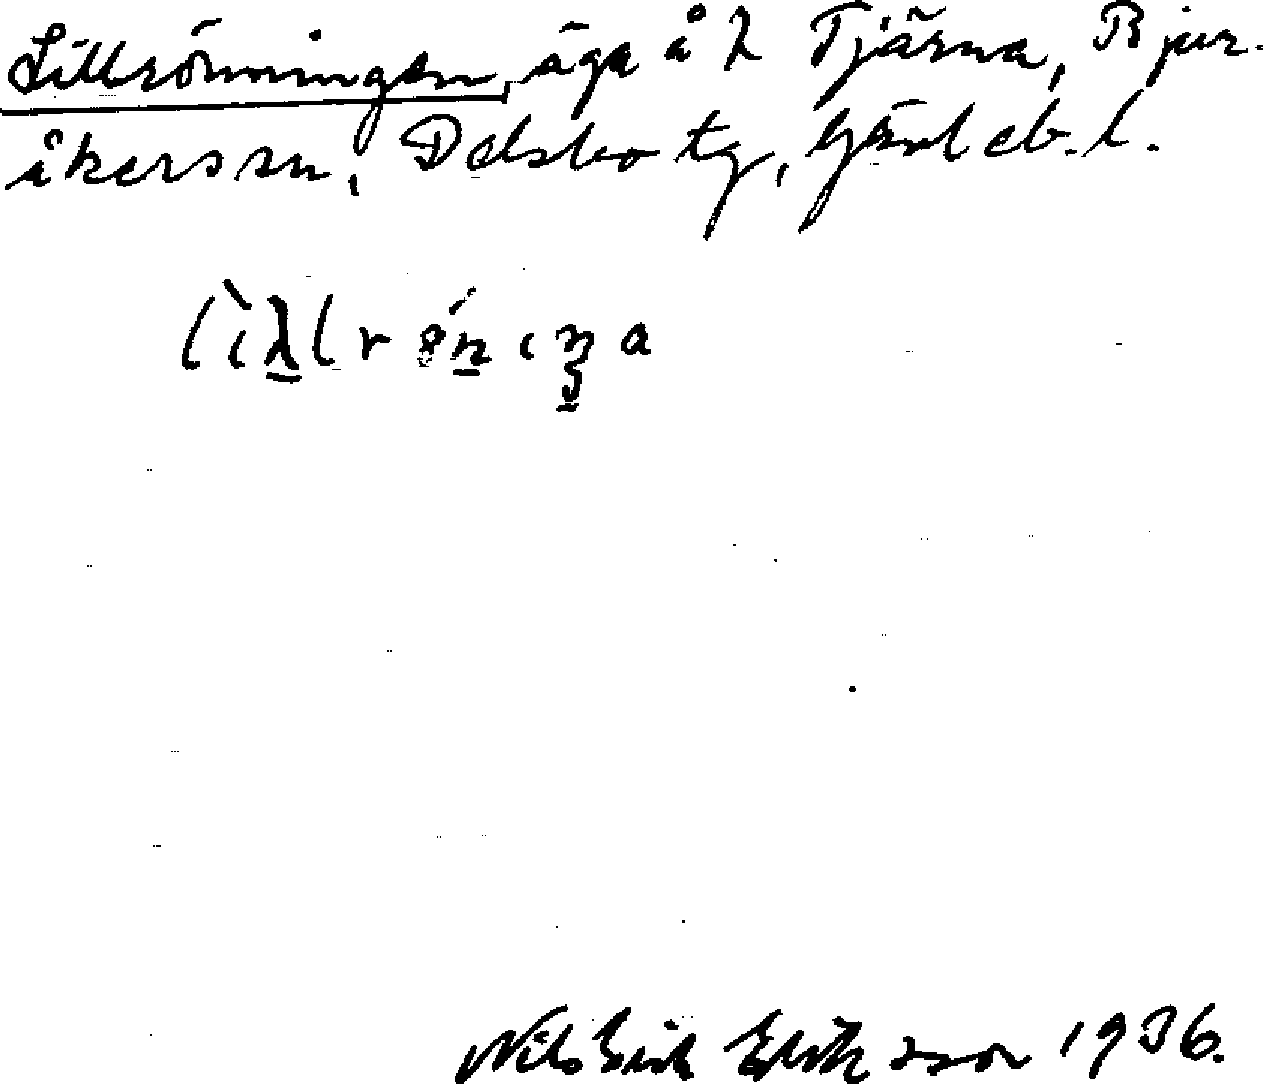 Lillrönningen, äga å h Tjärna, Bjur-
åkers sn, Delsbo tg, Gävleb. l.
Nils Erik Eriksson 1936.